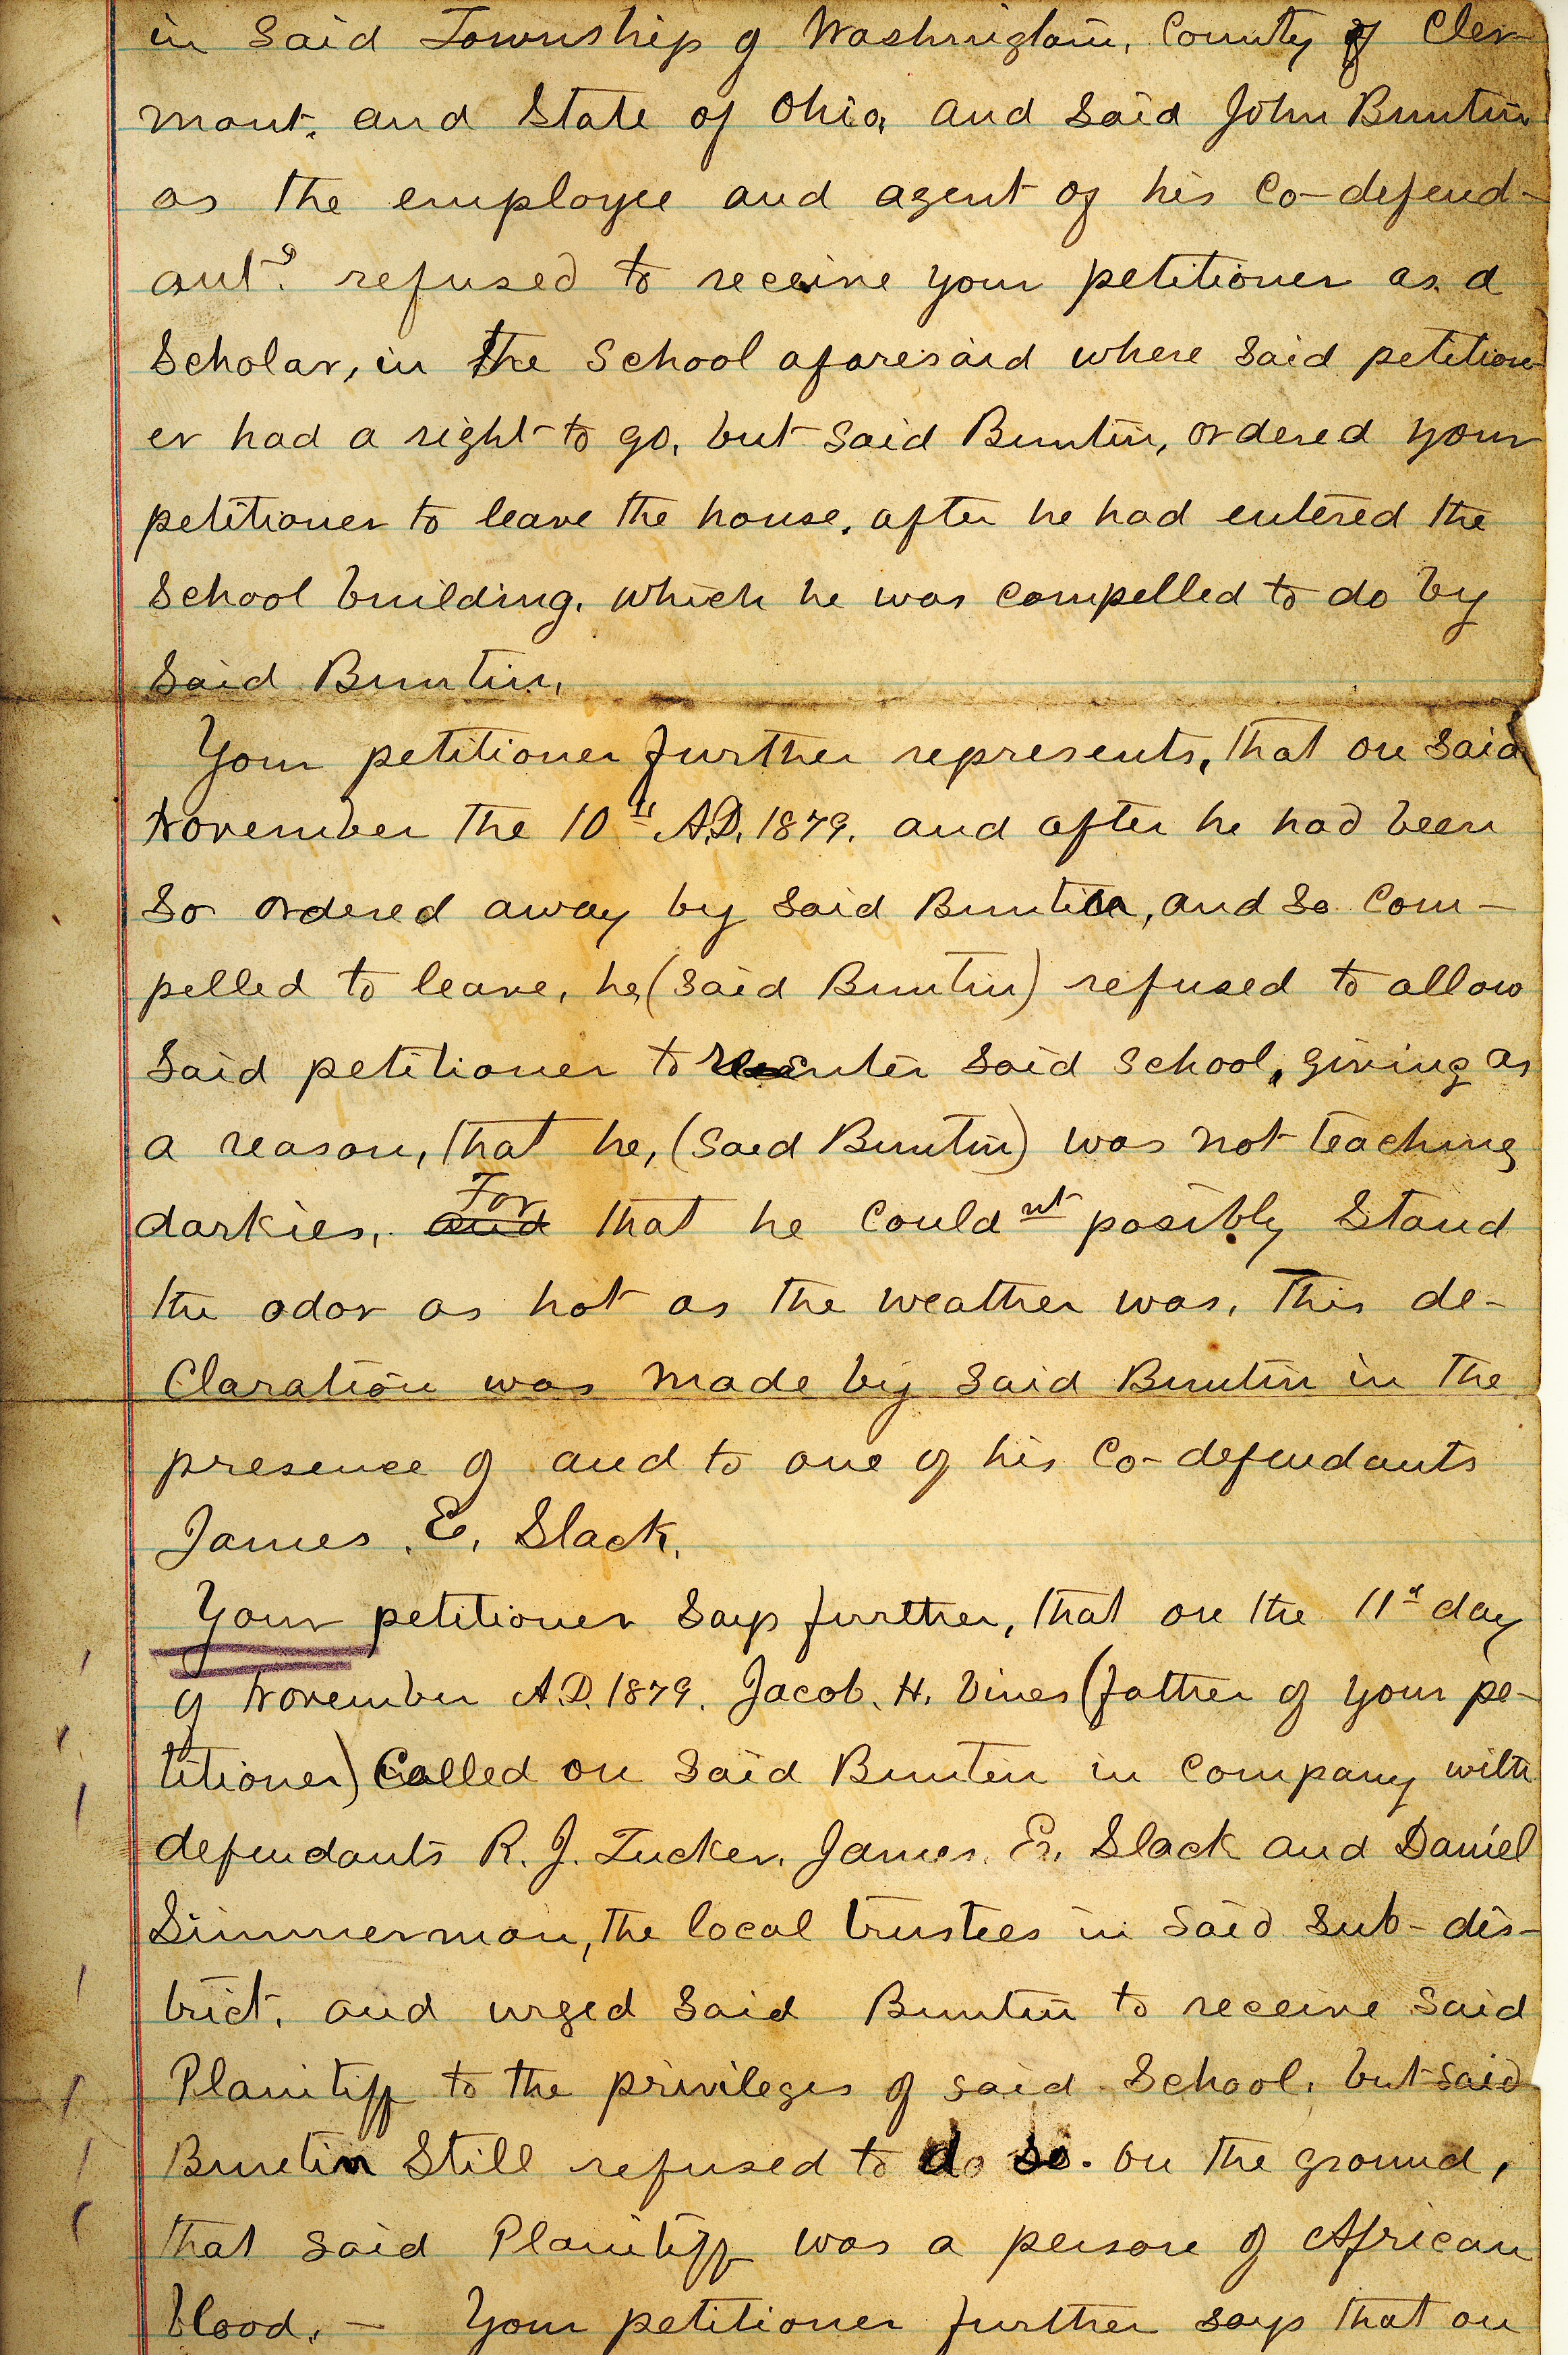 in said Township of Washington, County of Cler-
mont. and State of Ohio, and said John Buntin
as the employee and agent of his co-defend-
ants. refused to receive your petitioner as a
Scholar, in the School aforesaid where said petition-
er had a right to go, but said Buntin, ordered your
petitioner to leave the house, after he had entered the
School building, which he was compelled to do by
said Buntin,
Your petitioner further represents, that on said
November the 10th A.D. 1879. and after he had been
so ordered away by said Buntin, and so com-
pelled to leave, he, (said Buntin) refused to allow
said petitioner to reenter said school, giving as
a reason, that he, (said Buntin) was not teaching
darkies, and For that he could nt posibly stand
the odor as hot as the weather was. This de-
claration was made by said Buntin in the
presence of and to one of his co-defendants
James. E. Slack.
Your petitioner says further, that on the 11th day
of November A.D. 1879. Jacob. H. Vines (father of your pe-
titioner) called on said Buntin in company with
defendants R. J. Tucker, James. E. Slack and Daniel
Simmerman, the local trustees in said sub-dis-
trict, and urged said Buntin to receive said
Plaintiff to the privileges of said School, but said
Buntin still refused to do so. on the ground,
that said Plaintiff was a person of African
blood. — Your petitioner further says that on